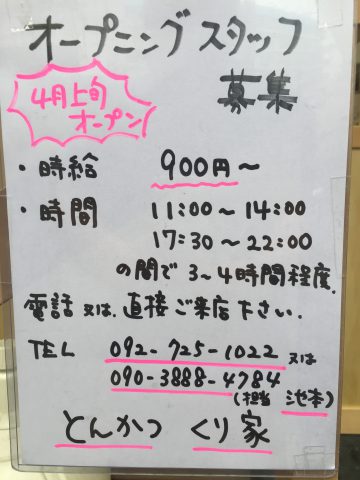 オープニングスタッフ
募集
4月上旬
オープン
・時給 900円〜
・時間 11:00〜14:00
17:30〜22:00
の間で 3〜4時間程度.
電話 又は. 直接ご来店下さい.
TEL 092-725-1022 又は
090-3888-4784
(担当 池本)
とんかつ くり家